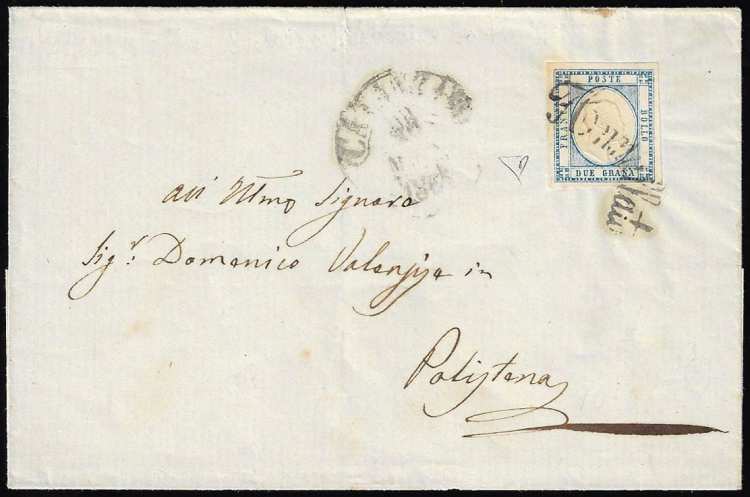 POSTE
FRAN
BOLLO
DUE GRANA
CATANZARO
All' Ill.mo Signore
Sig.r Domenico Valensise in
Polistena